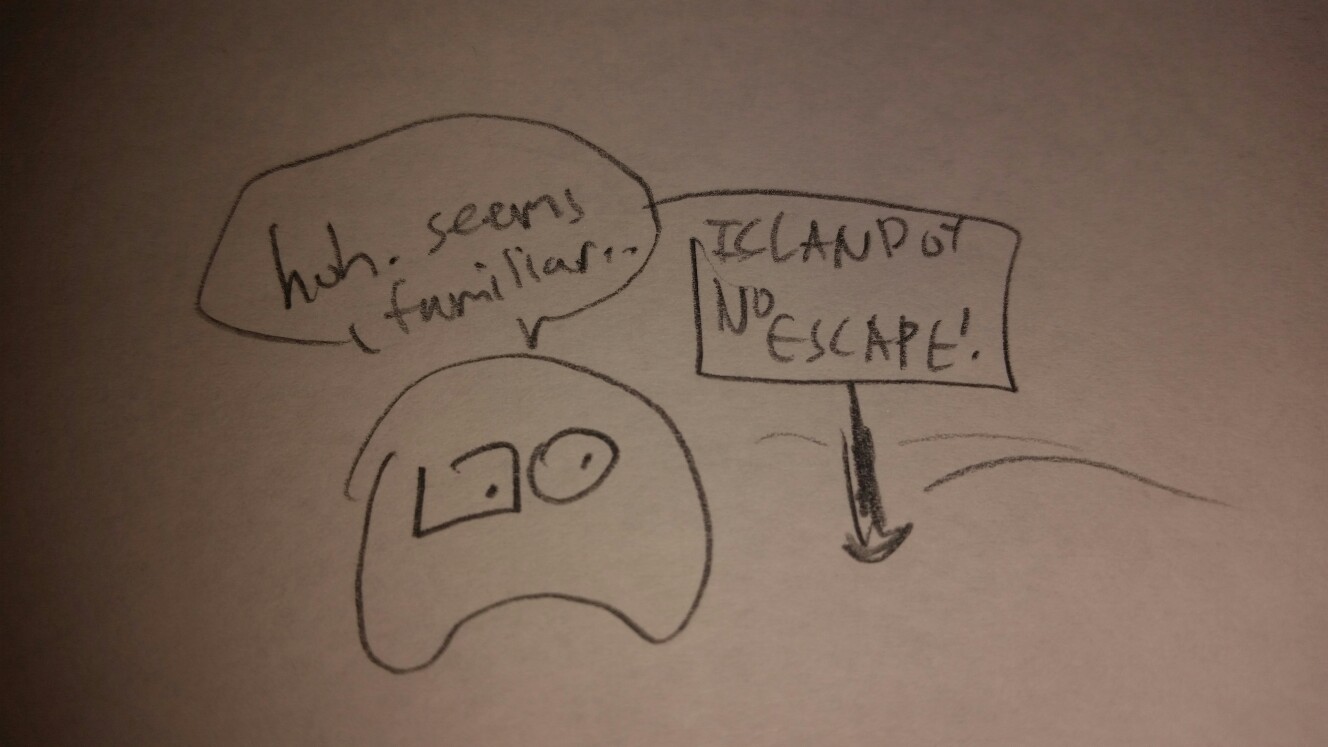 huh. seems
familiar...
ISLAND OF
NO
ESCAPE!